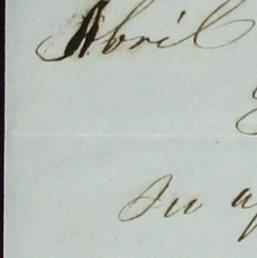 Abril
Su a